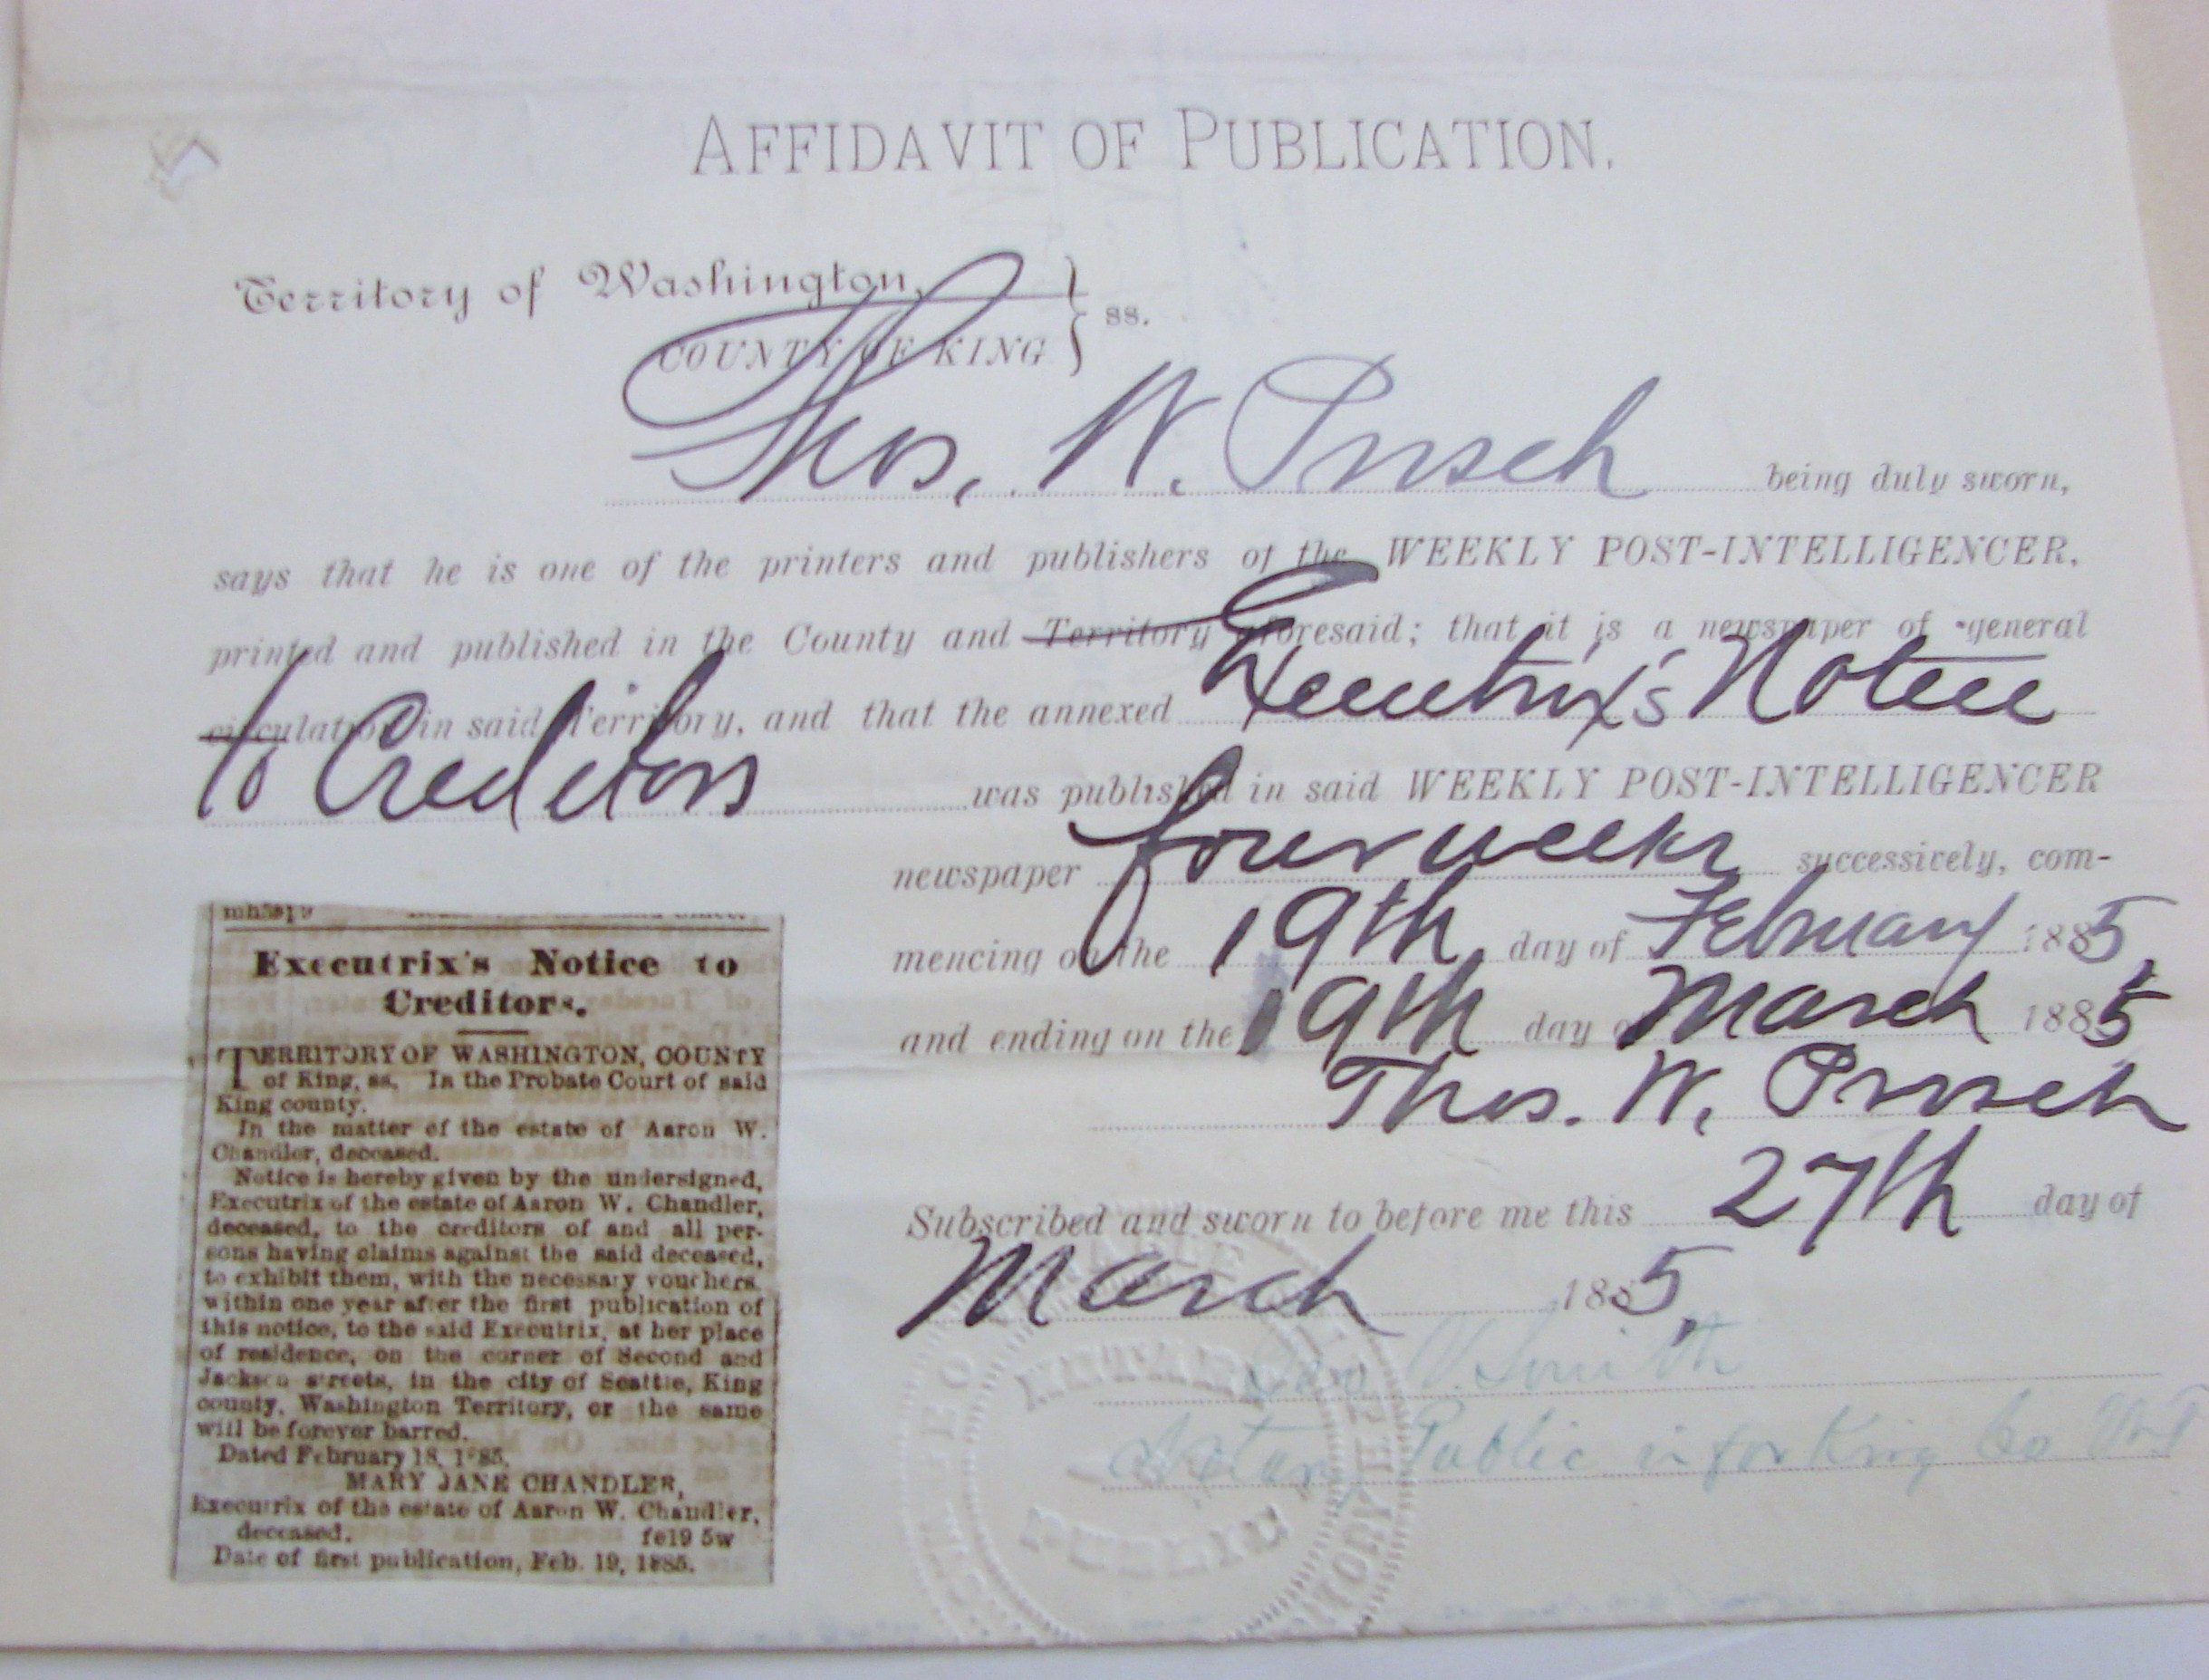 AFFIDAVIT OF PUBLICATION.
Territory of Washington,
COUNTY OF KING
ss.
Thos. W. Prosch being duly sworn,
says that he is one of the printers and publishers of the WEEKLY POST-INTELLIGENCER,
printed and published in the County and Territory aforesaid; that it is a newspaper of general
circulation in said Territory, and that the annexed Executrix's Notice
to Creditors was published in said WEEKLY POST-INTELLIGENCER
newspaper four weeks successively, com-
mencing on the 19th day of February 1885,
and ending on the 19th day of March 1885
Thos. W. Prosch
Subscribed and sworn to before me this 27th day of
March 1885,
Geo V. Smith
Notary Public in for King Co W T
NOTARY
PUBLIC
Executrix's Notice to
Creditors.
TERRITORY OF WASHINGTON, COUNTY
of King, ss. In the Probate Court of said
King county.
In the matter of the estate of Aaron W.
Chandler, deceased.
Notice is hereby given by the undersigned,
Executrix of the estate of Aaron W. Chandler,
deceased, to the creditors of and all per-
sons having claims against the said deceased,
to exhibit them, with the necessary vouchers,
within one year after the first publication of
this notice, to the said Executrix, at her place
of residence, on the corner of Second and
Jackson streets, in the city of Seattle, King
county, Washington Territory, or the same
will be forever barred.
Dated February 18, 1885.
MARY JANE CHANDLER,
Executrix of the estate of Aaron W. Chandler,
deceased. fe19 5w
Date of first publication, Feb. 19, 1885.